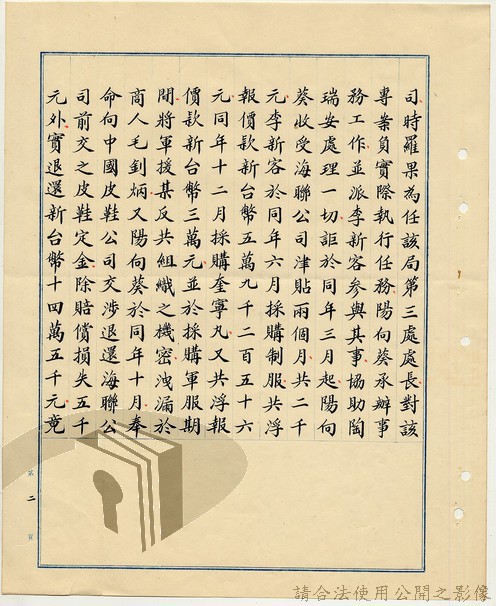 司時羅果為任該局第三處處長對該
專案負實際執行任務陽向葵承辦事
務工作並派李新容參與其事協助陶
瑞安處理一切詎於同年三月起陽向
葵收受海聯公司津貼兩個月共二千
元李新容於同年六月採購制服共浮
報價款新台幣五萬九千二百五十六
元同年十二月採購奎寧丸又共浮報
價款新台幣三萬元並於採購軍服期
間將軍援某反共組織之機密洩漏於
商人毛釗炳又陽向葵於同年十月奉
命向中國皮鞋公司交涉退還海聯公
司前交之皮鞋定金除賠償損失五千
元外實退還新台幣十四萬五千元竟
第二頁
請合法使用公開之影像